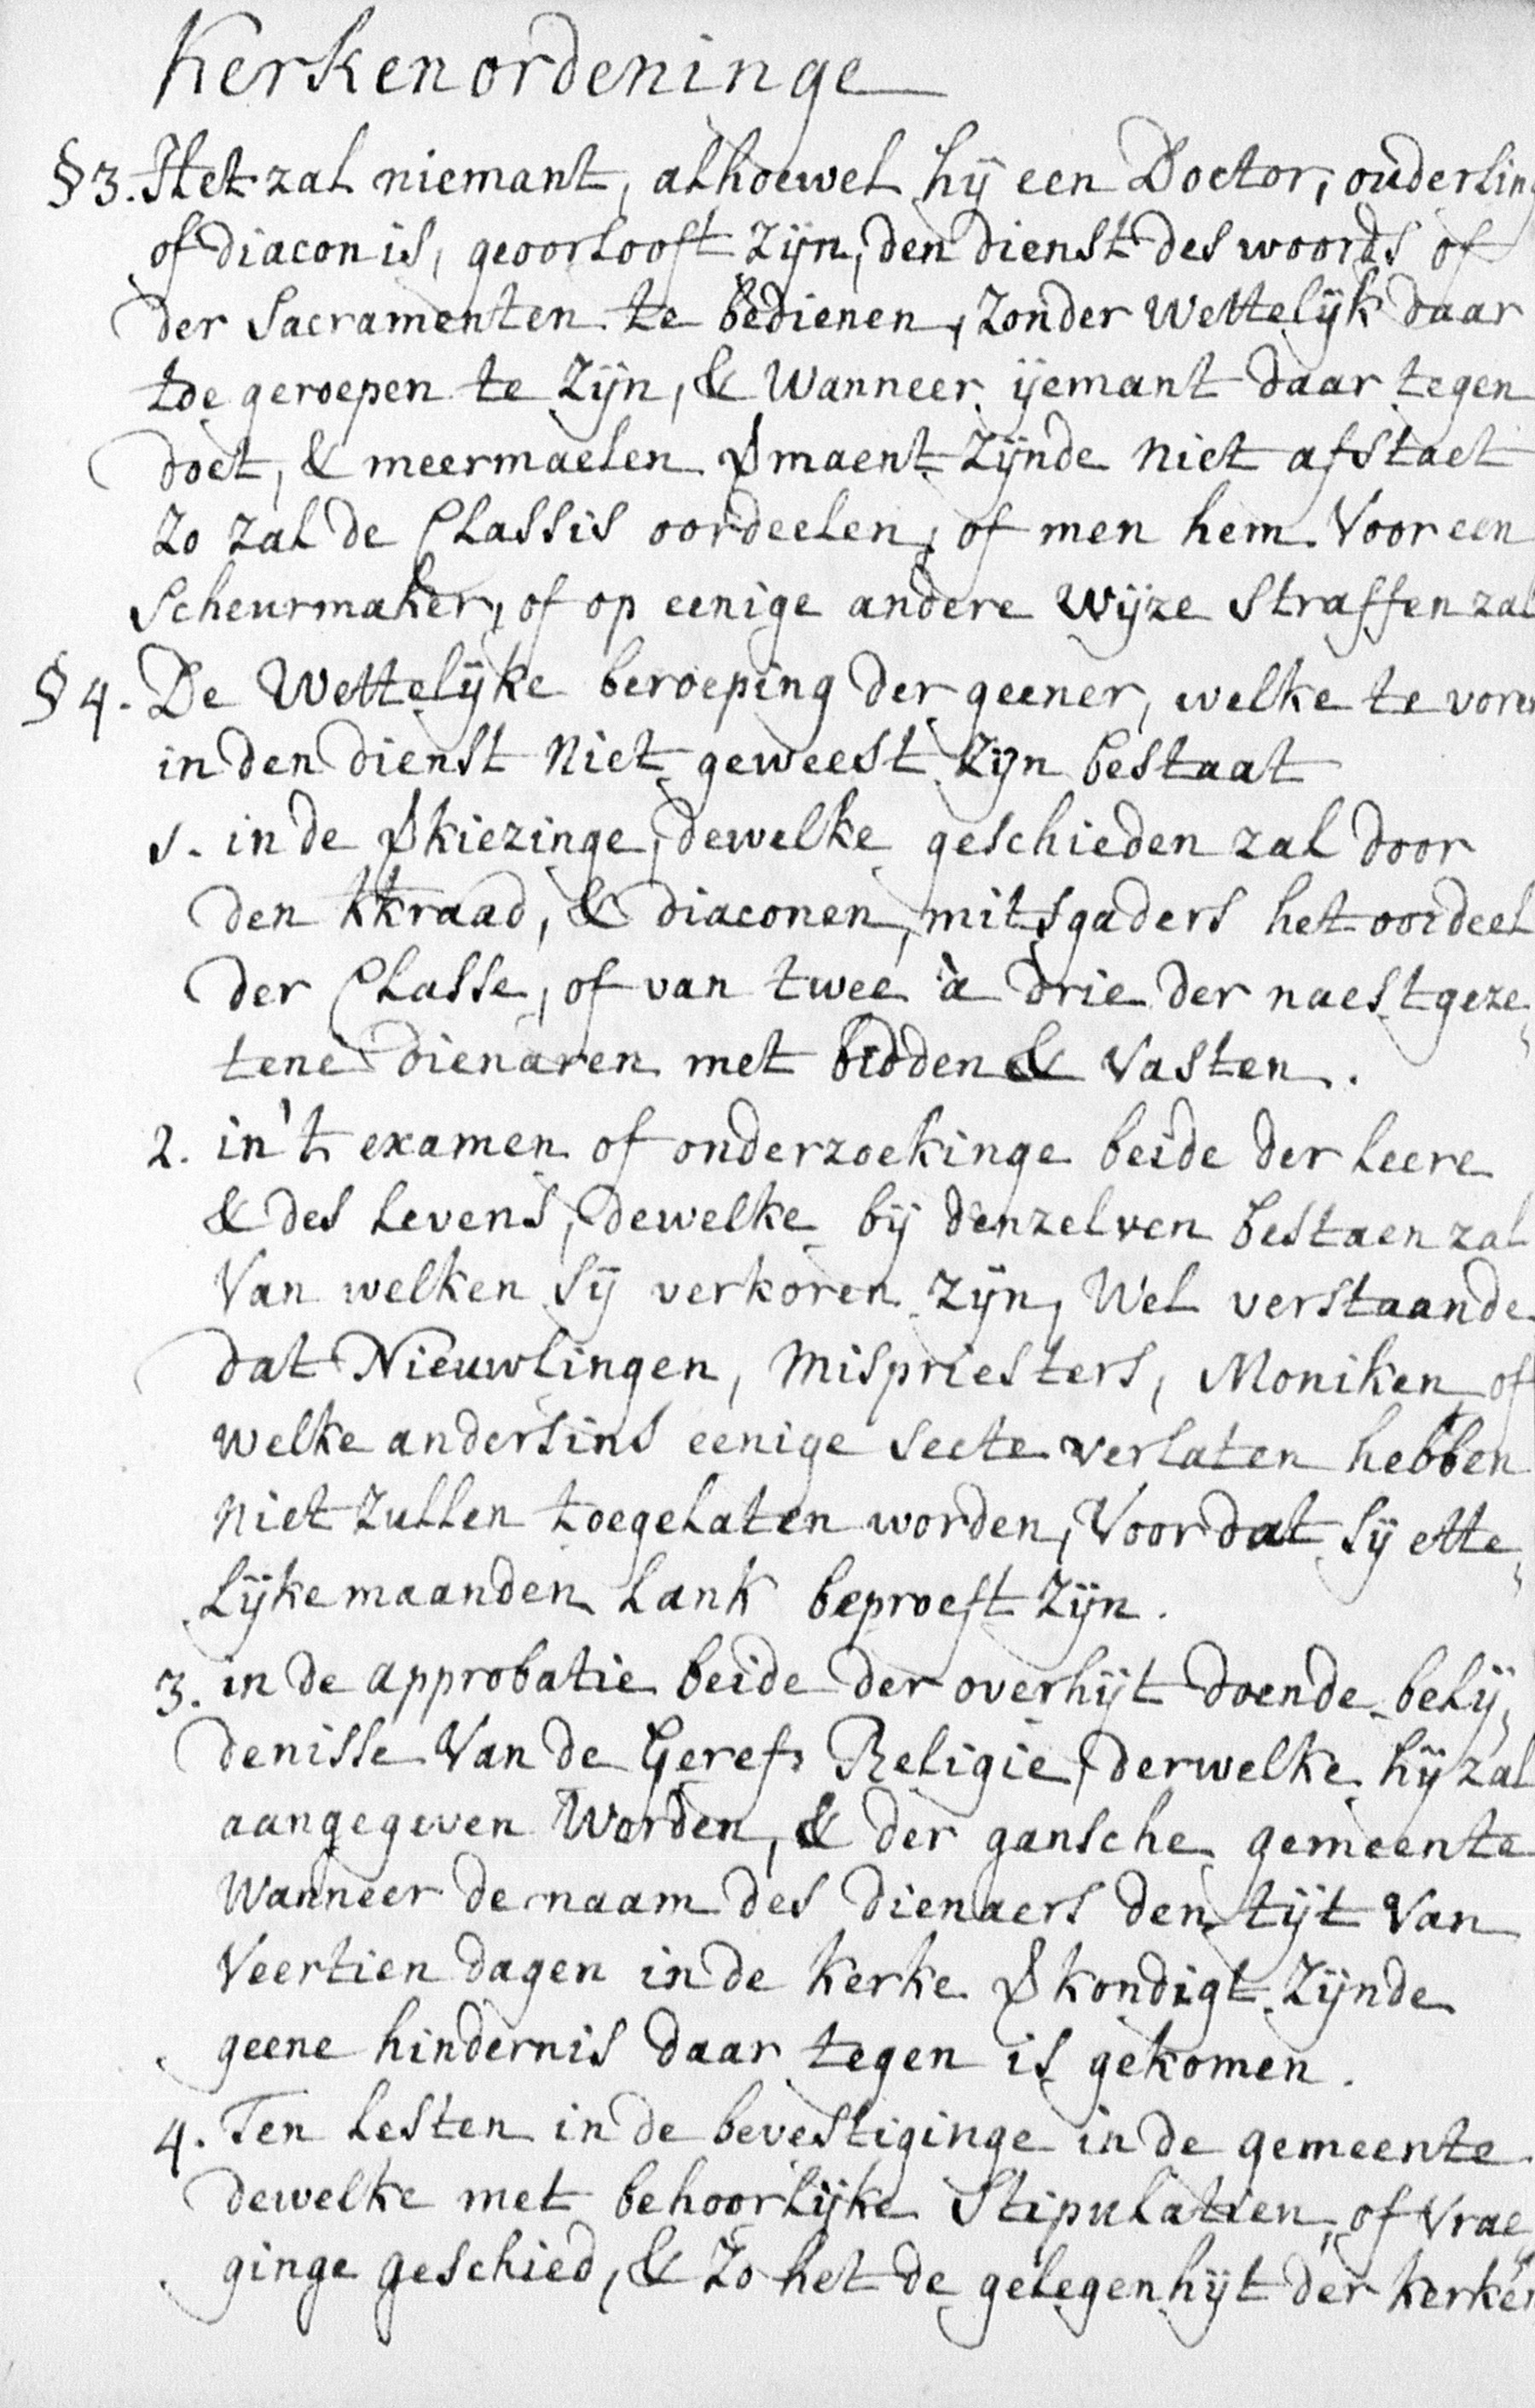 Kerkenordeninge
§3. Het zal niemant, alhoewel hij een Doctor, ouderling
of diacon is, geoorlooft zijn, den dienst des woords of
der Sacramenten te bedienen, zonder Wettelijk daar
toe geroepen te zijn, & Wanneer ijemant daar tegen
doet, & meermaelen ꝟmaent zijnde niet afstaet
zo zal de Classis oordeelen, of men hem Voor een
Scheurmaker, of op eenige andere wijze straffen zal
§4. De Wettelijke beroeping der geener, welke te voren
in den dienst niet geweest zijn bestaat
1. in de ꝟkiezinge, dewelke geschieden zal door
den kkraad, & diaconen, mitsgaders het oordeel
der Classe, of van twee à drie der naestgeze„
tene dienaren met bidden & Vasten.
2. in't examen of onderzoekinge beide der leere
& des levens, dewelke bij denzelven bestaen zal
Van welken sij verkoren zijn, Wel verstaande
dat Nieuwlingen, Mispriesters, Moniken of
welke andersins eenige secte verlaten hebben
niet zullen toegelaten worden, Voor dat sij ette„
lijke maanden lank beproeft zijn.
3. in de approbatie beide der overhijt doende belij„
denisse Van de Geref: Religie, derwelke hij zal
aangegeven Worden, & der gansche gemeente
Wanneer de naam des dienaers den tijt Van
Veertien dagen in de kerke ꝟkondigt zijnde
geene hindernis daar tegen is gekomen.
4. Ten lesten in de bevestiginge in de gemeente
dewelke met behoorlijke Stipulatien, of Vrae„
ginge geschied, & zo het de gelegenhijt der kerken